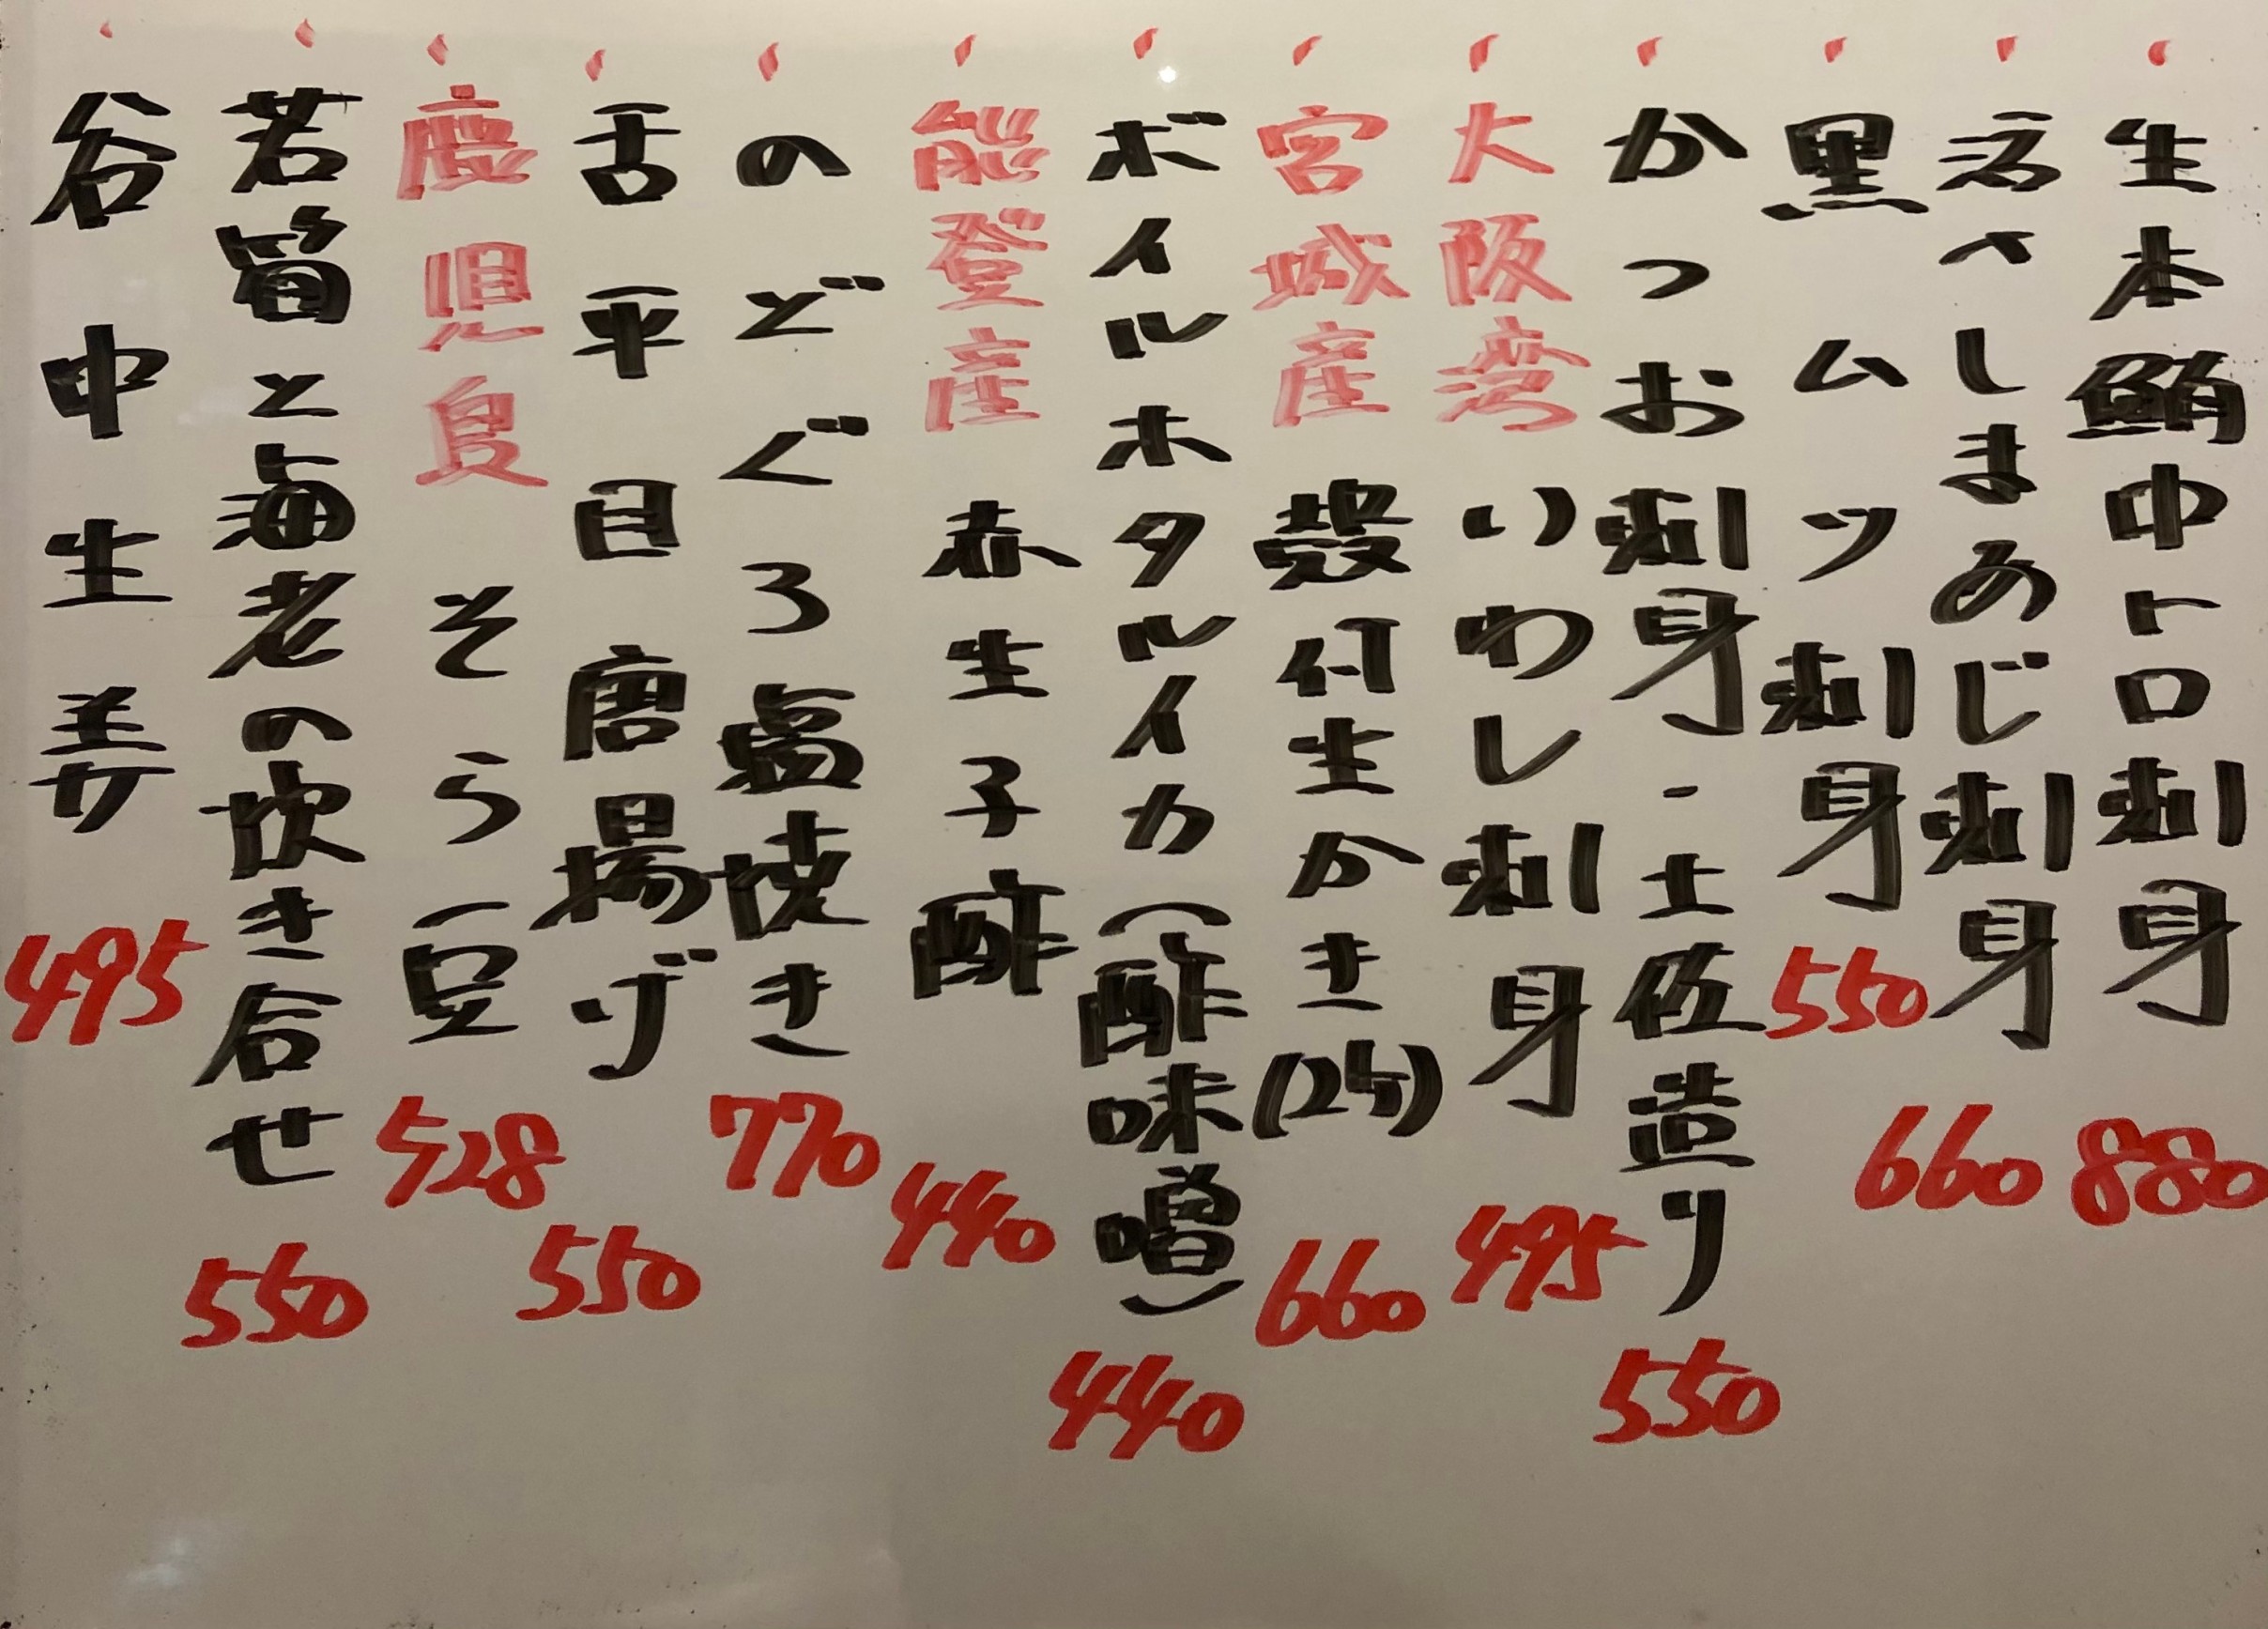 生本鮪中トロ刺身 880
活〆しまあじ刺身 660
黒ムツ刺身 550
かつお刺身・土佐造り 550
大阪湾 いわし刺身 495
宮城産 殻付生かき(2ケ) 660
ボイルホタルイカ(酢味噌) 440
能登産 赤生子酢 440
のどぐろ塩焼き 770
舌平目唐揚げ 550
鹿児島 そら豆 528
若筍と海老の炊き合せ 550
谷中生姜 495